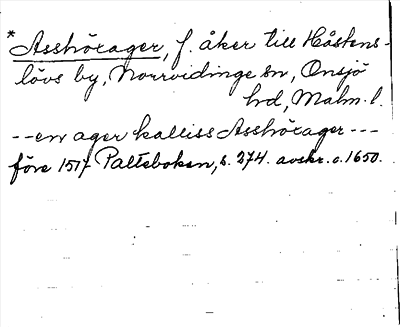 *Asshörager, f. åker till Håstens-
lövs by, Norrvidinge sn, Onsjö
hd, Malm. l.
--en ager kalliss Asshörager---
före 1517 Palteboken, s. 274. avskr. c. 1650.